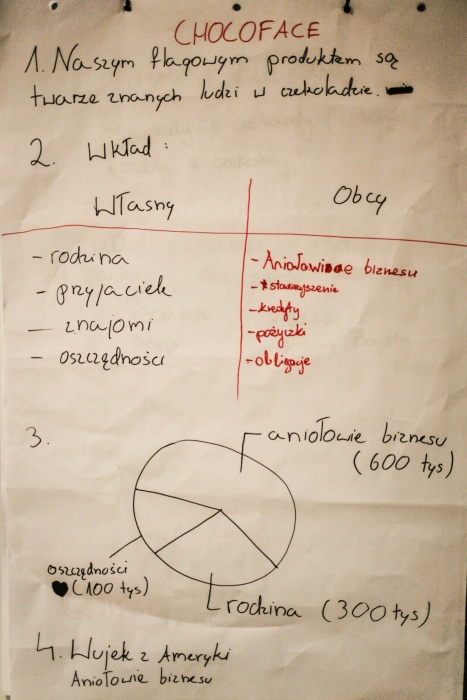 CHOCOFACE
1. Naszym flagowym produktem są
twarze znanych ludzi w czekoladzie.
2. Wkład:
Własny
Obcy
- rodzina
- przyjaciele
- znajomi
- oszczędności
- Aniołowie biznesu
- stowarzyszenie
- kredyty
- pożyczki
- obligacje
3.
aniołowie biznesu
(600 tys)
oszczędności
(100 tys)
rodzina (300 tys)
4. Wujek z Ameryki
Aniołowie biznesu